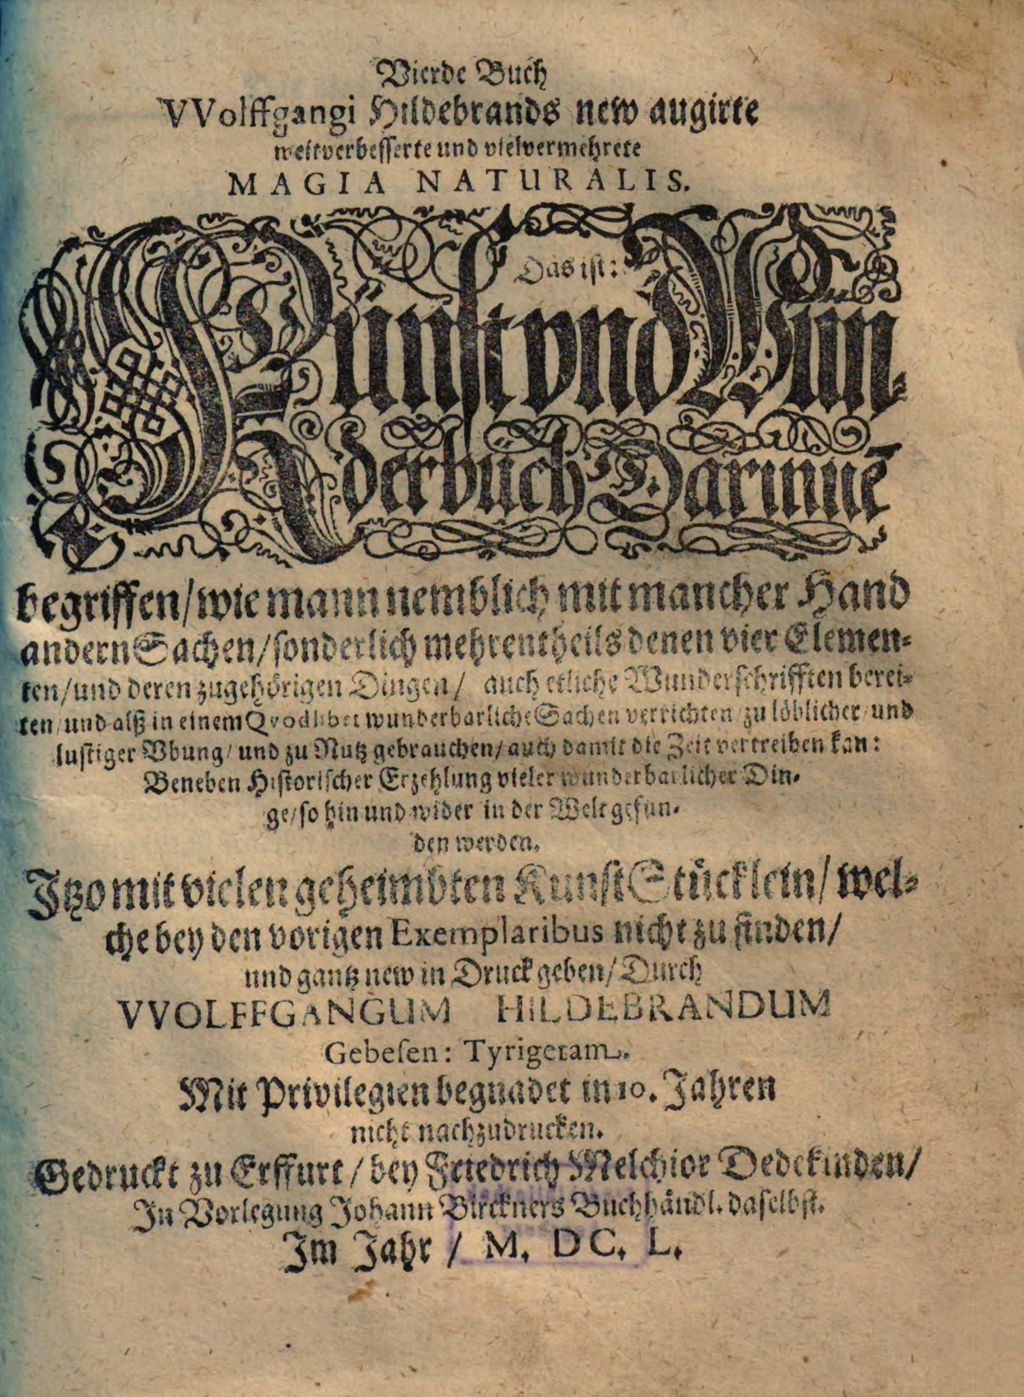 Vierde Buch
VVolffgangi Hildebrands new augirte
weitverbesserte und vielvermehrete
MAGIA NATURALIS.
Das ist:
Kunst vnd Wun-
derbuch Darinnē
begriffen/wie mann nemblich mit mancher Hand
andern Sachen/sonderlich mehrentheils denen vier Elemen-
ten/und deren zugehörigen Dingen/ auch etliche Wunderschrifften berei-
ten/und alß in einem Qvodlibet wunderbarliche Sachen verrichten/zu löblicher/und
lustiger Vbung/ und zu Nutz gebrauchen/auch damit die Zeit vertreiben kan:
Beneben Historischer Erzehlung vieler wunderbarlicher Din-
ge/so hin und wider in der Welt gefun-
den werden.
Jtzo mit vielen geheimbten KunstStücklein/wel-
che bey den vorigen Exemplaribus nicht zu finden/
und gantz new in Druck geben/Durch
VVOLFFGANGUM HILDEBRANDUM
Gebesen: Tyrigetam.
Mit Privilegien begnadet in 10. Jahren
nicht nachzudrucken.
Gedruckt zu Erffurt/bey Friedrich Melchior Dedekinden/
Jn Vorlegung Johann Birckners Buchhändl. daselbst.
Jm Jahr/ M. DC. L.